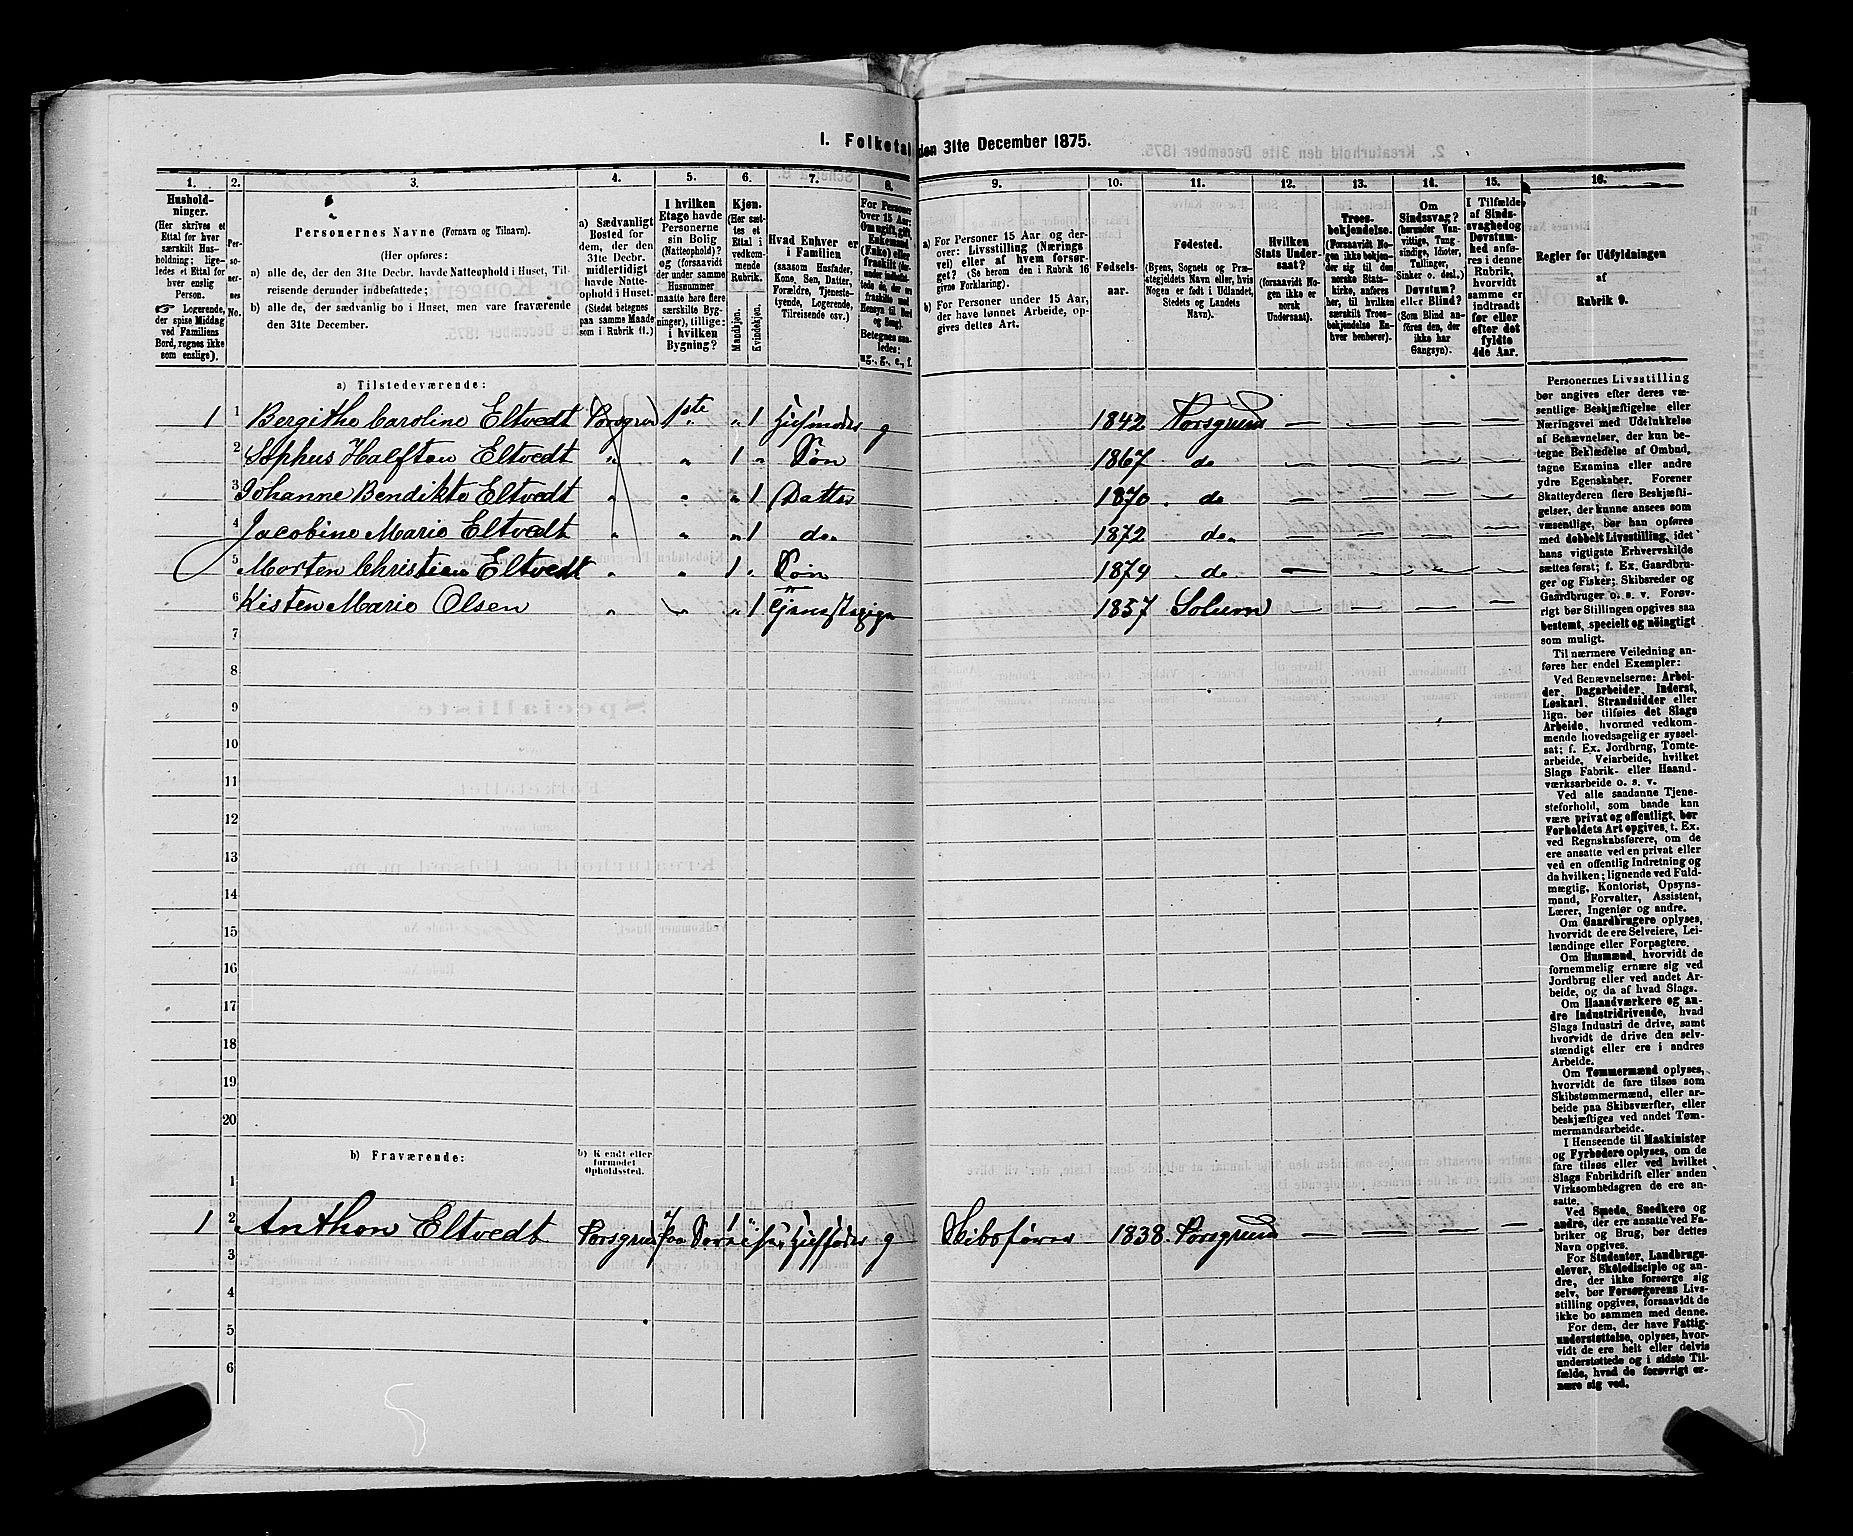 1. Folketal den 31te December 1875.
1. 2. 3. 4. 5. 6. 7. 8. 9. 10. 11. 12. 13. 14. 15. 16.
Hushold-
ninger.
(Her skrives et
Ettal for hver
særskilt Hus-
holdning; lige-
ledes et Ettal for
hver enslig
Person.
Logerende,
der spise Middag
ved Familiens
Bord, regnes ikke
som enslige).
Per-
soner-
nes
No.
Personernes Navne (Fornavn og Tilnavn).
(Her opføres:
a) alle de, der den 31te Decbr. havde Natteophold i Huset, Til-
reisende derunder indbefattede;
b) alle de, der sædvanlig bo i Huset, men vare fraværende
den 31te December.
a) Sædvanligt
Bosted for
dem, der den
31te Decbr.
midlertidigt
havde Natte-
ophold i Huset.
(Stedet betegnes
paa samme Maade
som i Rubrik 11.)
I hvilken
Etage havde
Personerne
sin Bolig
(Natteophold)?
og (forsaavidt
der under samme
Husnummer
maatte høre flere
særskilte Byg-
ninger), tillige:
i hvilken
Bygning?
Kjøn.
(Her sæt-
tes et
Ettal i
vedkom-
mende
Rubrik.
Mandkjøn.
Kvindekjøn.
Hvad Enhver er
i Familien
(saasom Husfader,
Kone, Søn, Datter,
Forældre, Tjeneste-
tyende, Logerende,
Tilreisende osv.)
For Personer
over 15 Aar:
Om ugift, gift,
Enkemand
(Enke) eller
fraskilt
ug., g., e., f.
a) For Personer 15 Aar og der-
over: Livsstilling (Nærings
vei) eller af hvem forsør-
get? (Se herom den i Rubrik 16
givne Forklaring).
b) For Personer under 15 Aar,
der have lønnet Arbeide, op-
gives dettes Art.
Fødsels-
aar.
Fødested.
(Byens, Sognets og Præ-
stegjeldets Navn eller, hvis
Nogen er født i Udlandet,
Stedets og Landets
Navn).
Hvilken
Stats Under-
saat?
(forsaavidt No-
gen ikke er
norsk
Undersaat).
Troes-
bekjendelse.
(Forsaavidt No-
gen ikke bekjen-
der sig til den
norske Stats-
kirke, anføres
her, til hvilken
særskilt Troes-
bekjendelse En-
hver henhører).
Om
Sindssvag?
(herunder Van-
vittige, Tung-
sindige, Idioter,
Tullinger,
Sinker o. desl.)
Døvstum?
eller Blind?
(Som Blind an-
føres den, der
ikke har
Gangsyn).
I Tilfælde
af Sinds-
svaghed og
Døvstum-
hed anfø-
res i denne
Rubrik,
hvorvidt
samme er
indtraadt
før eller
efter det
fyldte
4de Aar.
Regler for Udfyldningen
af
Rubrik 9.
a) Tilstedeværende:
1 1 Bergithe Caroline Eltvedt Porsgrund 1ste „ 1 Husmoder g 1842 Porsgrund — — — —
2 Sophus Halften Eltvedt „ „ 1 „ Søn 1867 do — — — —
3 Johanne Bendikte Eltvedt „ „ „ 1 Datter 1870 do — — — —
4 Jacobine Marie Eltvedt „ „ „ 1 do 1872 do — — — —
5 Morten Christien Eltvedt „ „ 1 „ Søn 1874 do — — — —
6 Kisten Marie Olsen „ „ „ 1 1857 Solum — — — —
7
8
9
10
11
12
13
14
15
16
17
18
19
20
b) Fraværende:
b) Kjendt eller
formodet
Opholdssted.
1
1 2 Anthon Eltvedt Porsgrund Husfader g Skibsfører 1838 Porsgrund — — — —
3
4
5
6
Personernes Livsstilling
bør angives efter deres væ-
sentlige Beskjæftigelse eller
Næringsvei med Udelukkelse
af Benævnelser, der kun be-
tegne Beklædelse af Ombud,
tagne Examina eller andre
ydre Egenskaber. Forener
Skatteyderen flere Beskjæfti-
gelser, der kunne ansees som
væsentlige, bør han opføres
med dobbelt Livsstilling, idet
hans vigtigste Erhvervskilde
sættes først; f. Ex. Gaardbru-
ger og Fisker; Skibsreder og
Gaardbruger o. s. v. Forøv-
rigt bør Stillingen opgives saa
bestemt, specielt og nøiagtigt
som muligt.
Til nærmere Veiledning an-
føres her endel Exempler:
Ved Benævnelserne: Arbei-
der, Dagarbeider, Inderst,
Løskarl, Strandsidder eller
lign. bør tilføies det Slags
Arbeide, hvormed vedkom-
mende hovedsagelig er syssel-
sat; f. Ex. Jordbrug, Tomte-
arbeide, Veiarbeide, hvilket
Slags Fabrik- eller Haand-
værksarbeide o. s. v.
Ved alle saadanne Tjene-
steforhold, som baade kan
være privat og offentligt, bør
Forholdets Art opgives, t. Ex.
ved Regnskabsførere, om de
ere ansatte ved en privat eller
ved en offentlig Indretning og
da hvilken; lignende ved Fuld-
mægtig, Kontorist, Opsyns-
mand, Forvalter, Assistent,
Lærer, Ingeniør og andre.
Om Gaardbrugere oplyses,
hvorvidt de ere Selveiere, Lei-
lændinge eller Forpagtere.
Om Husmænd, hvorvidt de
fornemmelig ernære sig ved
Jordbrug eller ved andet Ar-
beide, og da af hvad Slags.
Om Haandværkere og an-
dre Industridrivende, hvad
Slags Industri de drive, samt
hvorvidt de drive den selv-
stændigt eller ere i andres
Arbeide.
Om Tømmermænd oplyses,
hvorvidt de fare tilsøs som
Skibstømmermænd, eller ar-
beide paa Skibsværfter, eller
beskjæftiges ved andet Tøm-
mermandsarbeide.
I Henseende til Maskinister
og Fyrbødere oplyses, om de
fare tilsøs eller ved hvilket
Slags Fabrikdrift eller anden
Virksomhedsgren de ere an-
satte.
Ved Smede, Snedkere og
andre, der ere ansatte ved Fa-
briker og Brug, bør dettes
Navn opgives.
For Studenter, Landbrugs-
elever, Skoledisciple og an-
dre, der ikke forsørge sig
selv, bør Forsørgerens Livs-
stilling opgives, forsaavidt de
ikke bo sammen med denne.
For dem, der have Fattig-
understøttelse, oplyses, hvor-
vidt de ere helt eller delvis
understøttede og i sidste Til-
fælde, hvad de forøvrigt er-
nære sig ved.